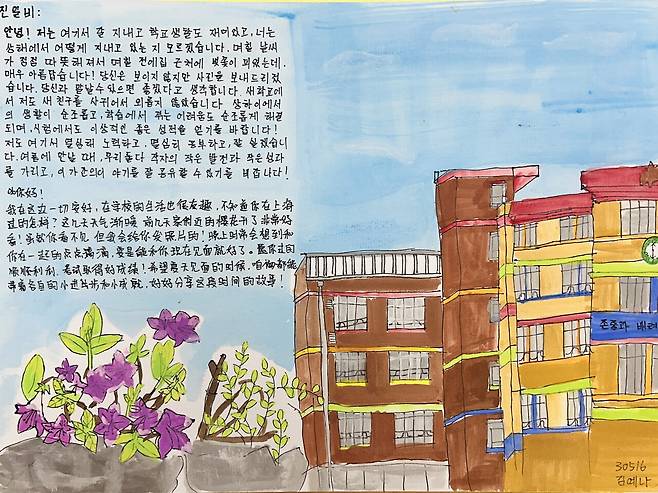 진월비:
안녕! 저는 여기서 잘 지내고 학교생활도 재미있고, 너는
상해에서 어떻게 지내고 있는 지 모르겠습니다. 며칠 날씨
가 점점 따뜻해져서 며칠 전에집 근처에 벚꽃이 피었는데.
매우 아름답습니다! 당신은 보이지 않지만 사진을 보내드리겠
습니다. 당신과 만날 수 있으면 좋겠다고 생각합니다. 새학교에
서 저도 새 친구를 사귀어서 외롭지 않았습니다. 상하이에서
의 생활이 순조롭고, 학습에서 겪는 어려움도 순조롭게 해결
되며, 시험에서도 이상적인 좋은 성적을 얻기를 바랍니다!
저도 여기서 열심히 노력하고, 열심히 공부하고, 잘 살겠습니
다. 여름에 만날 때, 우리 둘 다 각자의 작은 발전과 작은 성과
를 가지고, 이 기간의 이야기를 잘 공유할 수 있기를 바랍니다!
你好!
我在这边一切安好, 在学校的生活也很有趣, 不知道你在上海
过的怎样? 这几天天气渐暖 前几天家附近的樱花开了非常好
看! 虽然你看不见 但我会给你发照片的! 晚上时常会想到和
你在一起的点点滴滴, 要是能和你现在见面就好了。
顺顺利利, 考试取得好成绩! 希望夏天见面的时候, 咱俩都能
带着各自的小进步和小成就, 好好分享这段时间的故事!
존중과 배려
30516
김예나